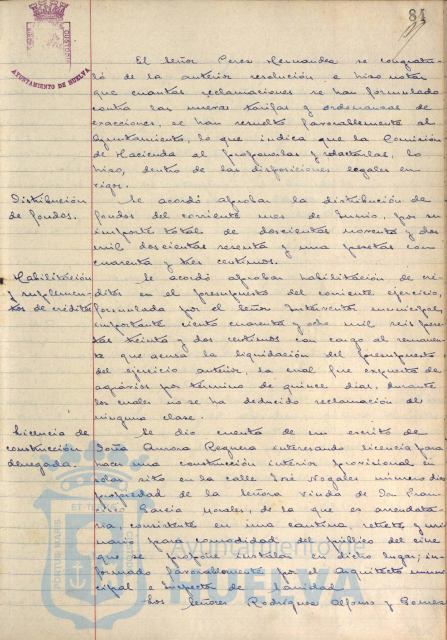 84
AYUNTAMIENTO DE HUELVA
El Señor Perez Hernandez se congratu-
ló de la anterior resolución e hizo notar
que cuantas reclamaciones se han formulado
contra las nuevas tarifas y ordenanzas de
exacciones, se han resuelto favorablemente al
Ayuntamiento, lo que indica que la Comisión
de Hacienda al proponerlas y redactarlas, lo
hizo, dentro de las disposiciones legales en
vigor.
Distribución
de fondos.
Se acordó aprobar la distribución de
fondos del corriente mes de Junio, por su
importe total de doscientas noventa y dos
mil doscientas sesenta y una pesetas con
cuarenta y tres centimos.
Habilitación
y suplemen-
tos de créditos
Se acordó aprobar habilitación de cré-
ditos en el presupuesto del corriente ejercicio,
formulada por el Señor Interventor municipal,
importante ciento cuarenta y ocho mil seis pese-
tas treinta y dos centimos con cargo al remanen-
te que acusa la liquidación del presupuesto
del ejercicio anterior, la cual fue expuesta de
agravios por término de quince dias, durante
los cuales no se ha deducido reclamación de
ninguna clase.
Licencia de
construcción
denegada.
Se dio cuenta de un escrito de
Doña Aurora Reguera interesando licencia para
hacer una construcción interior provisional en
solar sito en la calle José Nogales número dies
propiedad de la Señora Viuda de Don Fran-
cisco García Morales, de la que es arrendata-
ria, consistente en una cantina, retrete y uri-
narios para comodidad del público del cine
que se propone instalar en dicho lugar; in-
formado favorablemente por el Arquitecto muni-
cipal e Inspector de Sanidad.
Los Señores Rodriguez Alfonso y Gomez
PORTUS MARIS ET TERRAE CUSTODIA
Ayuntamiento de
HUELVA